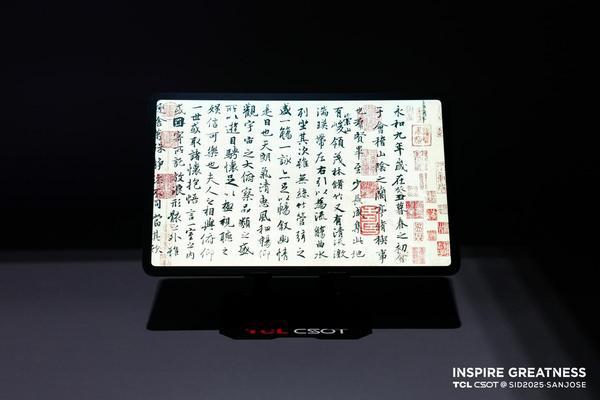 永和九年歲在癸丑暮春之初會
于會稽山陰之蘭亭脩稧事
也羣賢畢至少長咸集此地
有崇山峻領茂林脩竹又有清流激
湍暎帶左右引以為流觴曲水
列坐其次雖無絲竹管弦之
盛一觴一詠亦足以暢敘幽情
是日也天朗氣清惠風和暢仰
觀宇宙之大俯察品類之盛
所以遊目騁懷足以極視聽之
娛信可樂也夫人之相與俯仰
一世或取諸懷抱悟言一室之內
或因寄所託放浪形骸之外雖
不同當其欣
TCL CSOT
INSPIRE GREATNESS
TCL CSOT @ SID2025·SANJOSE